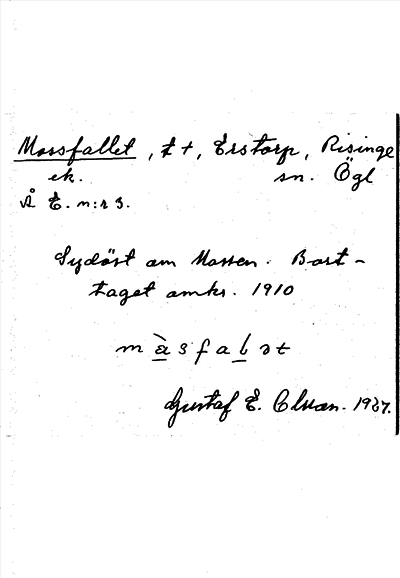 Mossfallet, t +, Erstorp, Risinge
ek. sn. Ögl
Å E. n:r 3.
Sydöst om Mossen. Bort-
taget omkr. 1910
màsfaḷət
Gustaf E. Olsson. 1927.